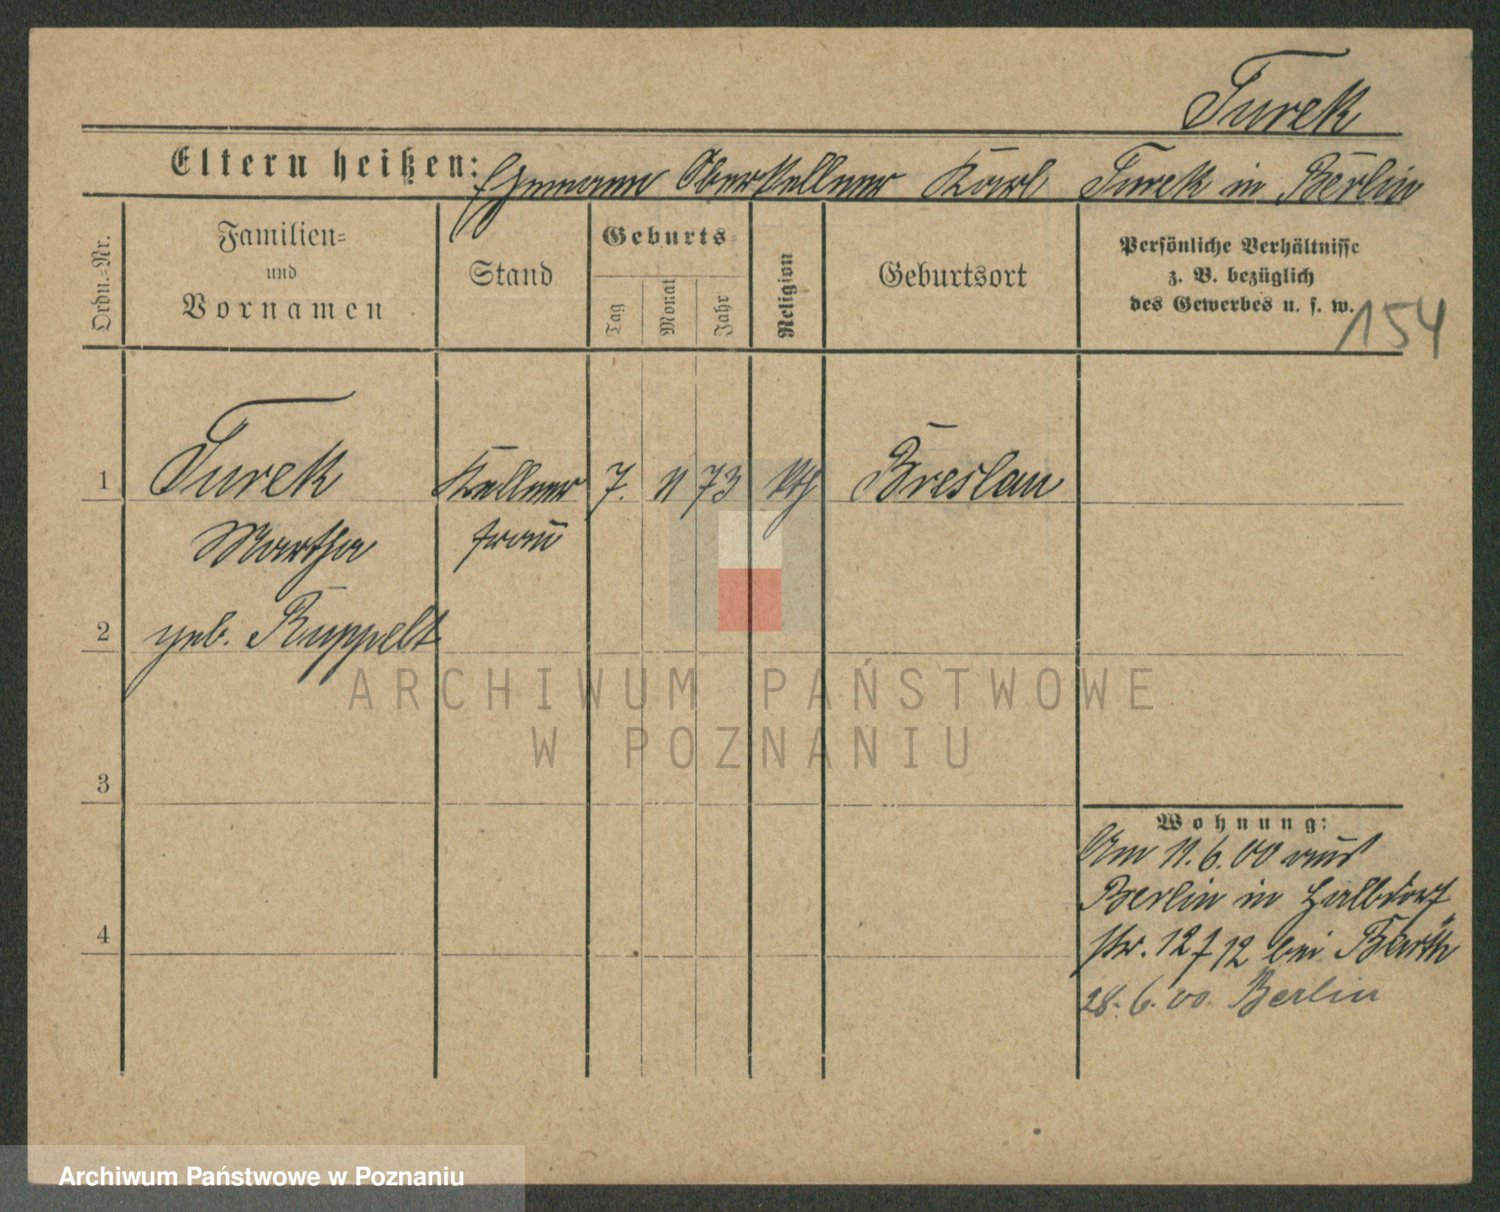 Turek
Eltern heißen: Ehemann Oberkellner Karl Turek in Berlin
Ordn.-Nr.
Familien-
und
Vornamen
Stand
Geburts-
Tag
Monat
Jahr
Religion
Geburtsort
Persönliche Verhältnisse
z. B. bezüglich
des Gewerbes u. s. w.
154
1 Turek Kellner 7. 11 73 kth Breslau
Martha frau
2 geb. Ruppelt
ARCHIWUM PAŃSTWOWE
W POZNANIU
3
Wohnung:
Am 11.6.00 aus
Berlin in Halbdorf
4
str. 12 f 12 bei Barth
28.6.00. Berlin
Archiwum Państwowe w Poznaniu